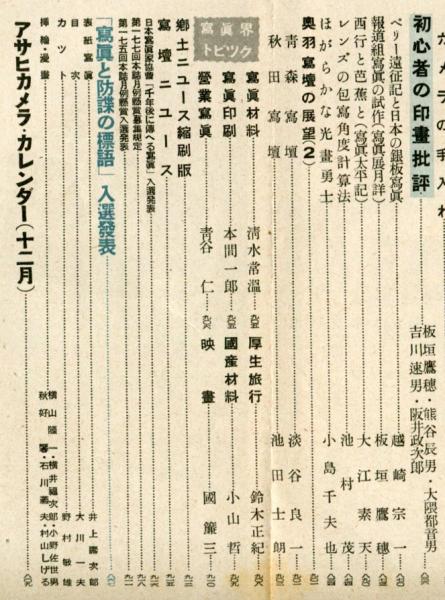 カメラの手入れ
初心者の印畫批評
板垣鷹穗・熊谷辰男・大隈都音男
吉川速男・阪井政次郎
ペリー遠征記と日本の銀板寫眞 越崎宗一
報道組寫眞の試作(寫眞展月評) 板垣鷹穗
西行と芭蕉と(寫眞太平記) 大江素天
レンズの包寫角度計算法 池村茂
ほがらかな光畫勇士 小島千夫也
奧羽寫壇の展望(2)
青森寫壇 淡谷良一
秋田寫壇 池田士朗
寫眞界トピツク
寫眞材料 清水常溫 厚生旅行 鈴木正紀
寫眞印刷 本間一郎 國產材料 小山哲
營業寫眞 靑谷仁 映畫 國簾三
鄕土ニユース縮刷版
寫壇ニユース
日本寫眞家協會「千年後に傳へる寫眞」入選發表
第一七七回本誌月例懸賞募集規定
第一七五回本誌月例懸賞入選發表
「寫眞と防諜の標語」入選發表
表紙寫眞 井上
目次 大川一夫
カツト 野村敏雄
挿繪・漫畫 横山隆一・横井福次郎・小野佐世男
秋好馨・石川義夫・村山しげる
アサヒカメラ・カレンダー(十二月)